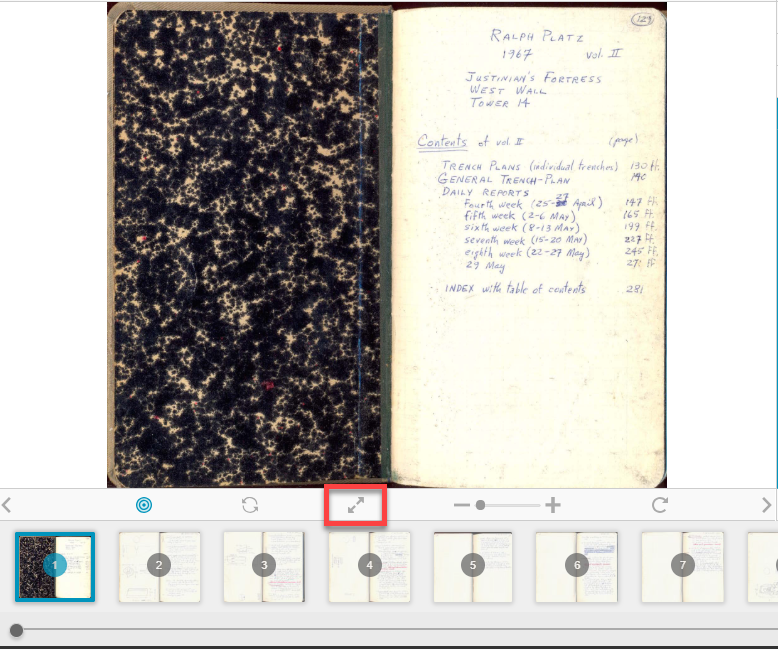 129
RALPH PLATZ
1967 vol. II
JUSTINIAN'S FORTRESS
WEST WALL
TOWER 14
Contents of vol. II (page)
TRENCH PLANS (individual trenches) 130 ff.
GENERAL TRENCH-PLAN 140
DAILY REPORTS
Fourth week (25-27 April) 147 ff.
fifth week (2-6 MAY) 165 ff.
sixth week (8-13 MAY) 199 ff.
seventh week (15-20 MAY) 227 ff.
eighth week (22-27 May) 245 ff.
29 May ff
INDEX with table of contents 281
1 2 3 4 5 6 7